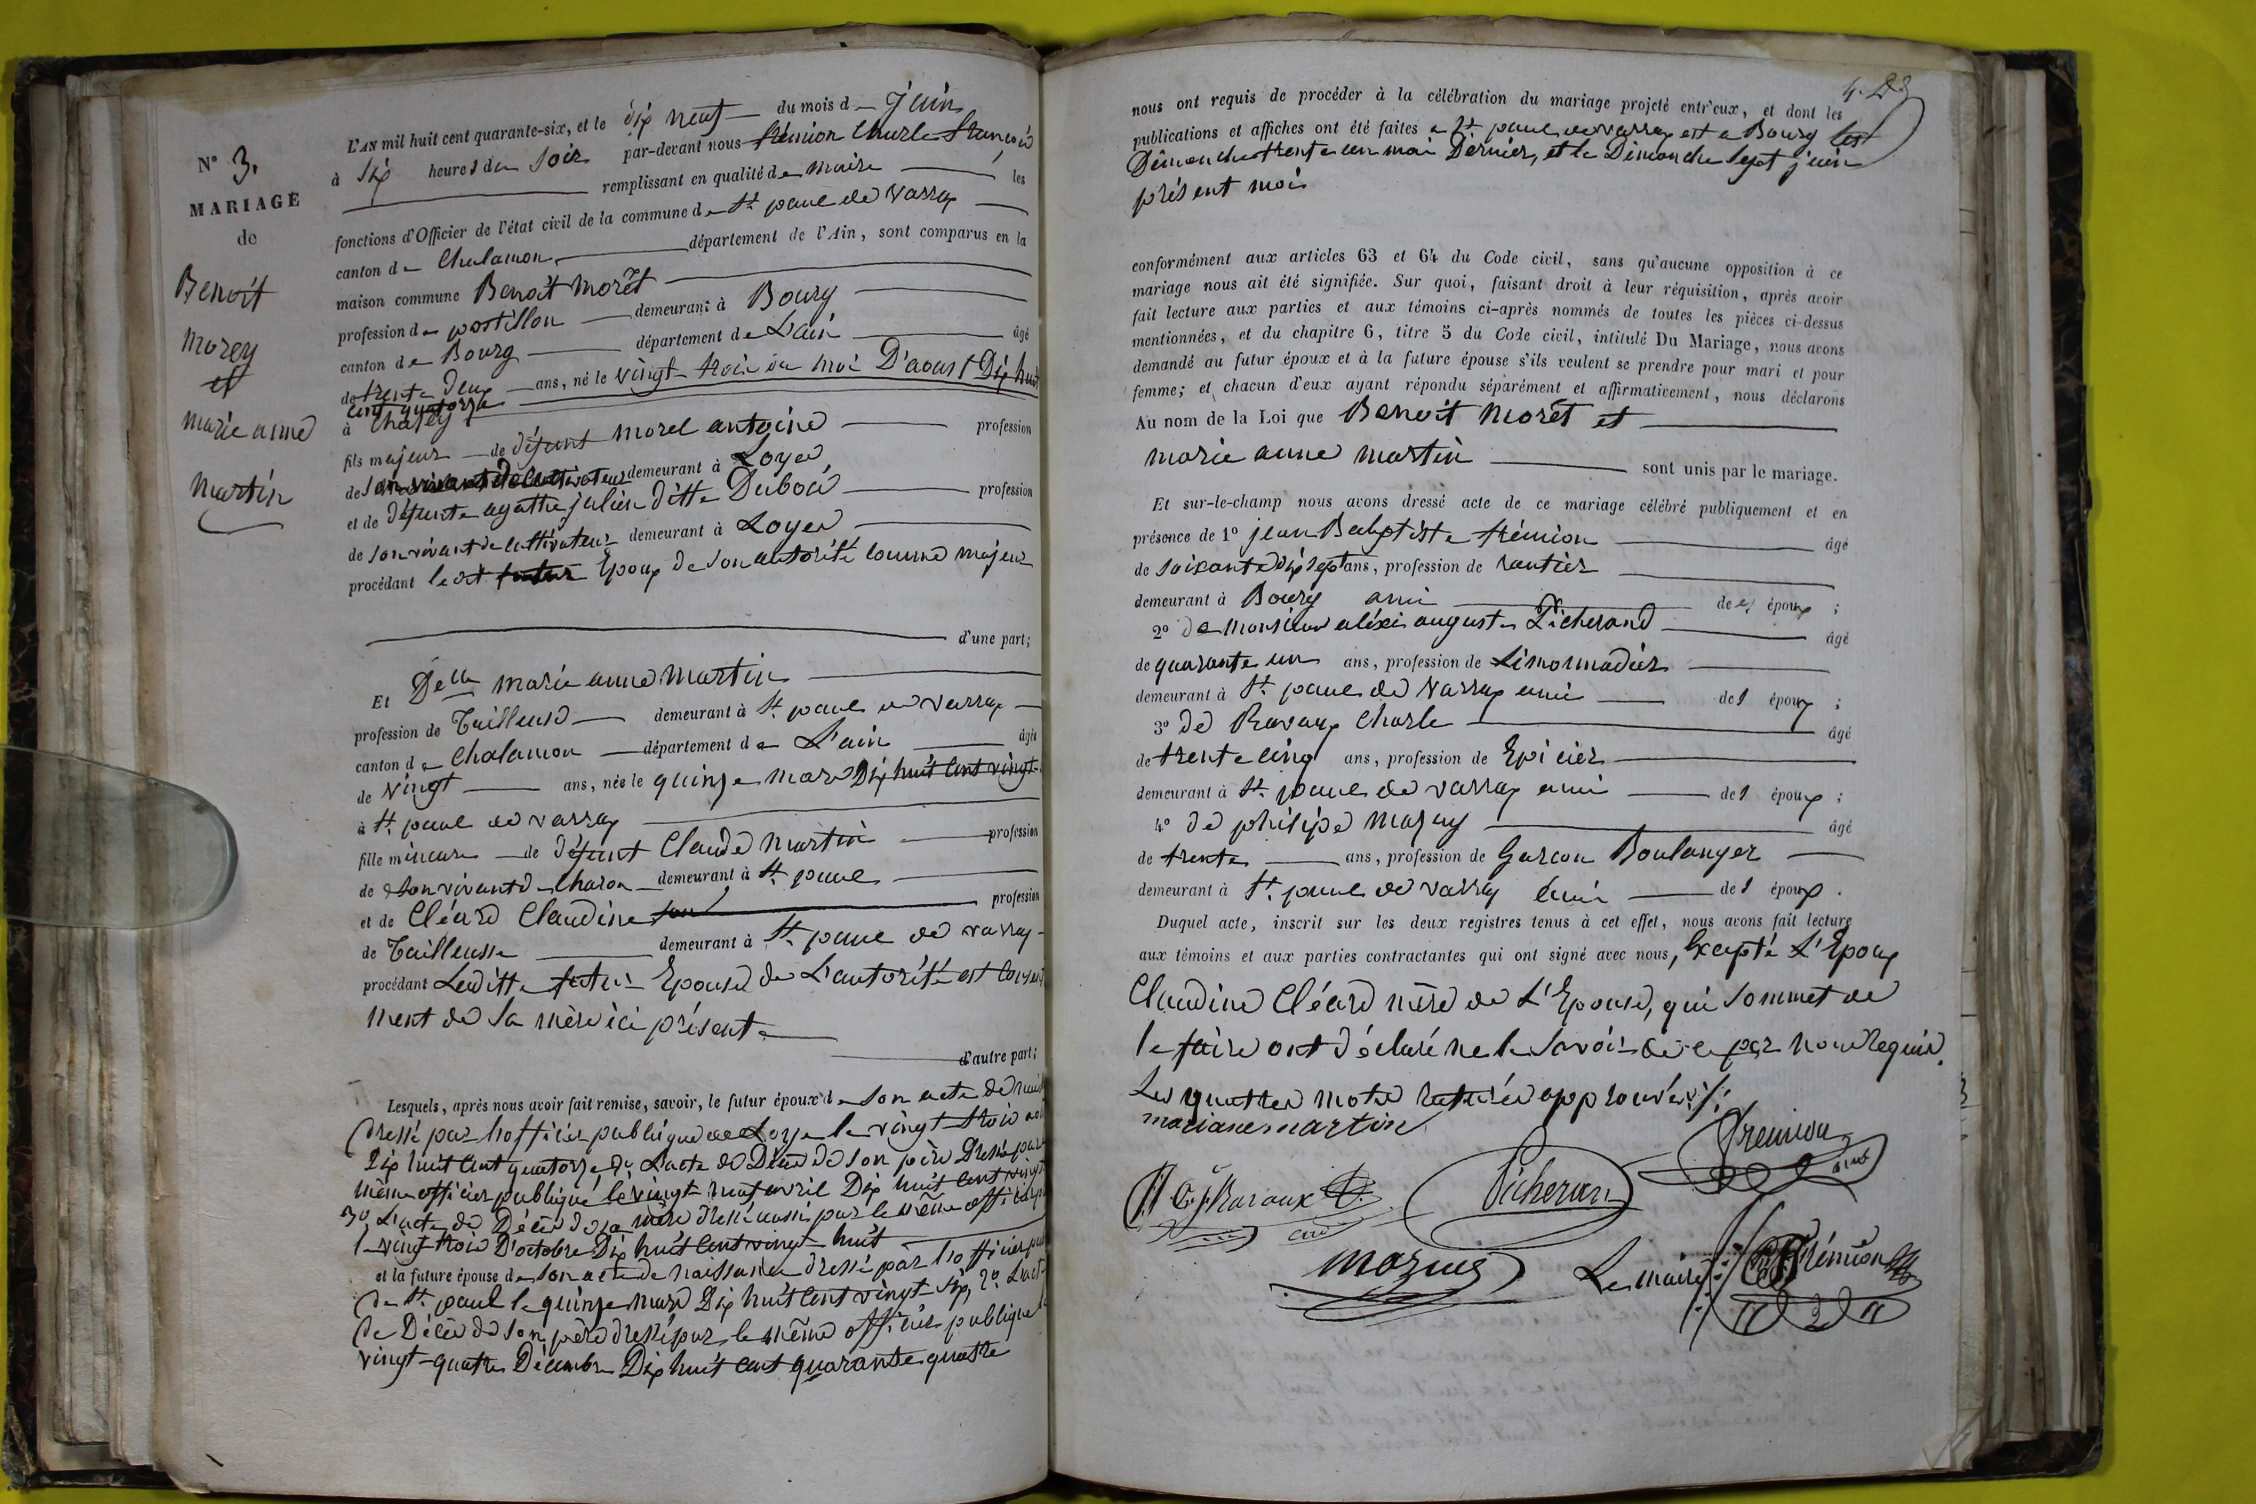 N° 3.
MARIAGE
de
Benoit
morey
et
marie anne
Martin
L'AN mil huit cent quarante-six, et le dix neuf du mois de juin
à six heures du soir par-devant nous frémion Charle françois
remplissant en qualité de maire les
fonctions d'Officier de l'état civil de la commune de St. paul de varax
canton de Chalamon, département de l'Ain, sont comparus en la
maison commune Benoit Moret
profession de postillon demeurant à Bourg
canton de Bourg département de L'ain âgé
de trente deux ans, né le vingt trois du moi D'aoust Dix huit
cent quatorze
à Chasey
fils majeur de défunt morel antoine profession
de son vivant de Cultivateur demeurant à Loyed
et de défunte agathe julien ditte Duboi profession
de son vivant de Cultivateur demeurant à Loyed
procédant le dit futur Epoux de son autorité comme majeur
d'une part;
Et Delle marie anne Martin
profession de Tailleuse demeurant à St. paul de varax
canton de Chalamon département de L'ain âgée
de vingt ans, née le quinze mars Dix huit Cent vingt
à St. paul de varax
fille mineure de défunt Claude Martin profession
de son vivant de Charon demeurant à St. paul
et de Cléard Claudine profession
de Tailleusse demeurant à St. paul de varax
procédant Leditte futur Epouse de L'autorité est Consent
ment de sa mère ici présente
d'autre part;
Lesquels, après nous avoir fait remise, savoir, le futur époux de son acte de nais
dressé par l'officier publique de Loye le vingt trois aout
Dix huit Cent quatorze 2° L'acte de Décès de son père Dressé par
même officier publique le vingt neuf avril Dix huit Cent vingt
3° L'acte de Décès de sa mère dressé aussi par le même officier
le vingt trois D'octobre Dix huit Cent vingt huit
et la future épouse de son acte de naissance dressé par l'officier
de St. paul le quinze Mars Dix huit Cent vingt six, 2° L'act
de Décès de son père dressé par le même officier publique
vingt-quatre Décembre Dix huit Cent quarante quatre
nous ont requis de procéder à la célébration du mariage projeté entr'eux, et dont les
publications et affiches ont été faites a St. paul de varax est a Bourg les
Dimanche trente un mai Dernier, et le Dimanche sept juin
présent mois
conformément aux articles 63 et 64 du Code civil, sans qu'aucune opposition à ce
mariage nous ait été signifiée. Sur quoi, faisant droit à leur réquisition, après avoir
fait lecture aux parties et aux témoins ci-après nommés de toutes les pièces ci-dessus
mentionnées, et du chapitre 6, titre 5 du Code civil, intitulé Du Mariage, nous avons
demandé au futur époux et à la future épouse s'ils veulent se prendre pour mari et pour
femme; et chacun d'eux ayant répondu séparément et affirmativement, nous déclarons
Au nom de la Loi que Benoit Moret et
marie anne martin sont unis par le mariage.
Et sur-le-champ nous avons dressé acte de ce mariage célébré publiquement et en
présence de 1° jean Babptiste frémion âgé
de soixante dix sept ans, profession de rantier
demeurant à Bourg ami de l' époux ;
2° de Monsieur aléxi auguste Picherand âgé
de quarante un ans, profession de Limonnadier
demeurant à St. paul de varax ami de l époux ;
3° de Ravaux Charle âgé
de trente cinq ans, profession de Epicier
demeurant à St. paul de varax ami de l époux ;
4° de philipe Mazuy âgé
de trente ans, profession de Garcon Boulanger
demeurant à St. paul de varax ami de l époux.
Duquel acte, inscrit sur les deux registres tenus à cet effet, nous avons fait lecture
aux témoins et aux parties contractantes qui ont signé avec nous, Excepté L'Epoux
Claudine Cléard mère de L'Epouse, qui sommet de
le faire ont déclaré ne le savoir de ce par nous Requis.
Les quattre mots raturés approuvés
mariane martin
fremion ainé
Ravaux
Picheran
mazuis
Le maire frémion